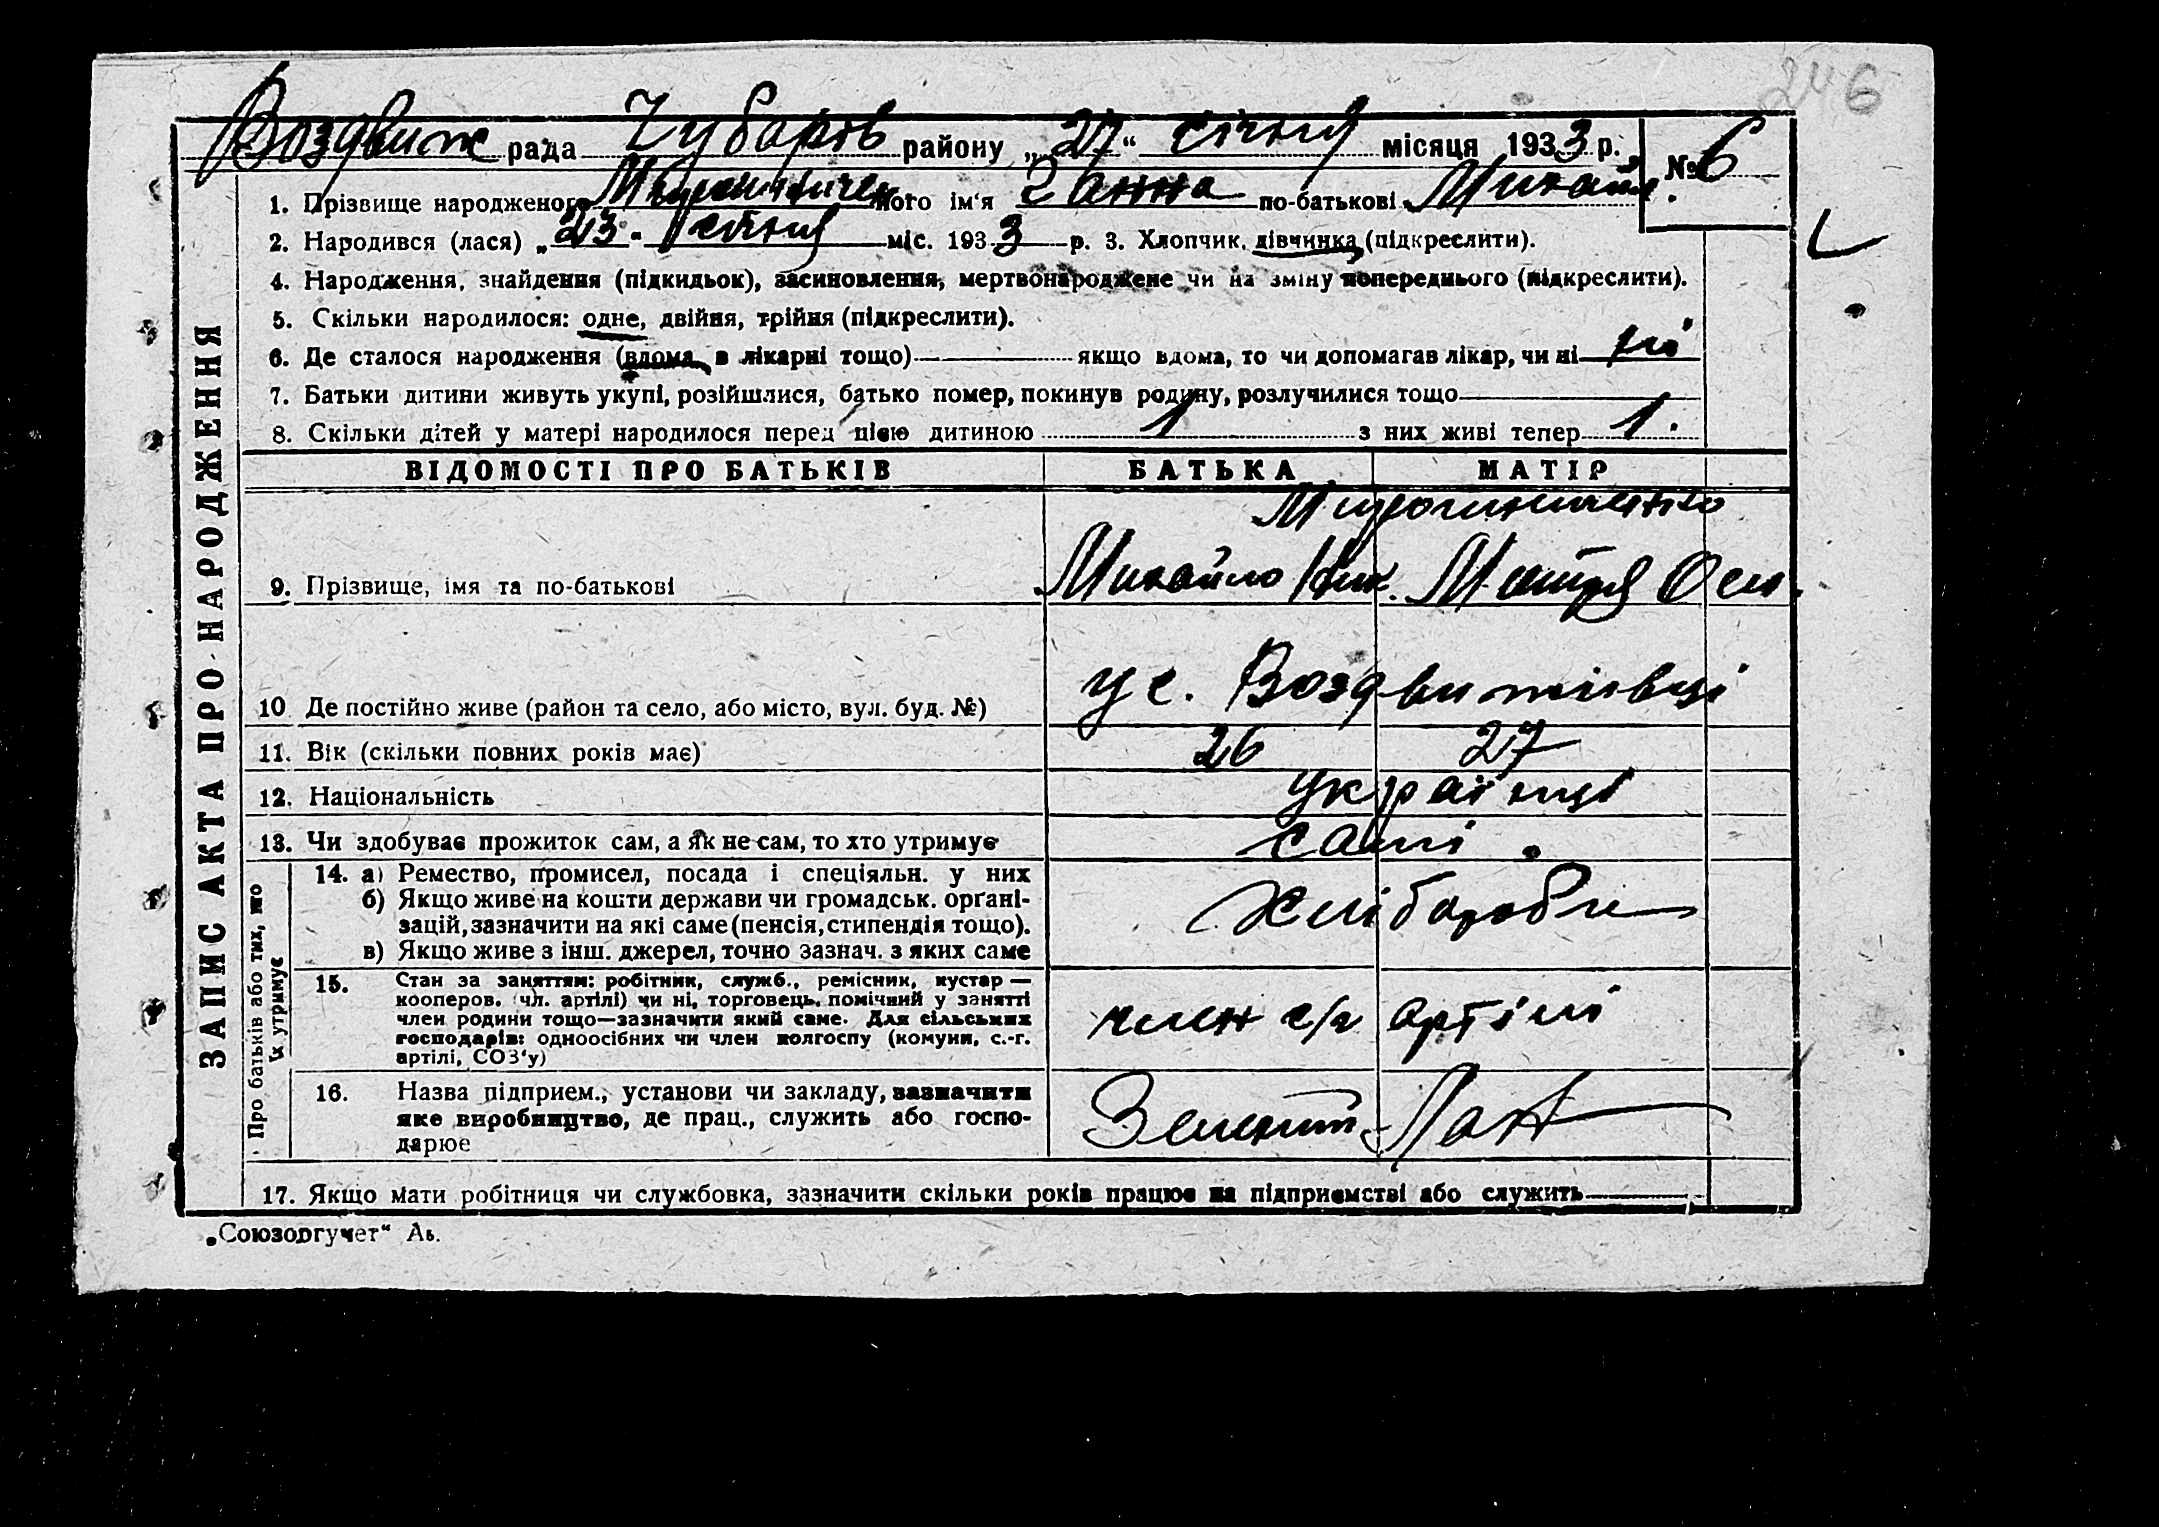 246
Воздвиж рада Чубарів району „27“ січня місяця 1933 р. № 6
1. Прізвище народженого його ім'я Ганна по-батькові Михайл.
2. Народився (лася) „23“ січня міс. 1933 р. 3. Хлопчик, дівчинка (підкреслити).
4. Народження, знайдення (підкидьок), засиновлення, мертвонароджене чи на зміну попереднього (підкреслити).
5. Скільки народилося: одне, двійня, трійня (підкреслити).
6. Де сталося народження (вдома, в лікарні тощо) якщо вдома, то чи допомагав лікар, чи ні ні
7. Батьки дитини живуть укупі, розійшлися, батько помер, покинув родину, розлучилися тощо
8. Скільки дітей у матері народилося перед цією дитиною 1 з них живі тепер 1.
ЗАПИС АКТА ПРО НАРОДЖЕННЯ
ВІДОМОСТІ ПРО БАТЬКІВ БАТЬКА МАТІР
9. Прізвище, імя та по-батькові Михайло Ник. Мотря Осип.
10 Де постійно живе (район та село, або місто, вул. буд. №) у с. Воздвижівці
11. Вік (скільки повних років має) 26 27
12. Національність українці
13. Чи здобуває прожиток сам, а як не сам, то хто утримує самі.
Про батьків або тих, хто їх утримує
14. а) Ремество, промисел, посада і спеціяльн. у них
б) Якщо живе на кошти держави чи громадськ. орґані-
зацій, зазначити на які саме (пенсія, стипендія тощо).
в) Якщо живе з інш. джерел, точно зазнач. з яких саме
хлібороби
15. Стан за заняттям: робітник, служб., ремісник, кустар —
кооперов. (чл. артілі) чи ні, торговець, помічний у занятті
член родини тощо—зазначити який саме. Для сільських
господарів: одноосібних чи член колгоспу (комуни, с.-г.
артілі, СОЗ'у)
член с/г артілі
16. Назва підприем., установи чи закладу, зазначити
яке виробництво, де прац., служить або госпо-
дарює
Зелений Лан
17. Якщо мати робітниця чи службовка, зазначити скільки років працює на підприємстві або служить
„Союзоргучет“ Аь.